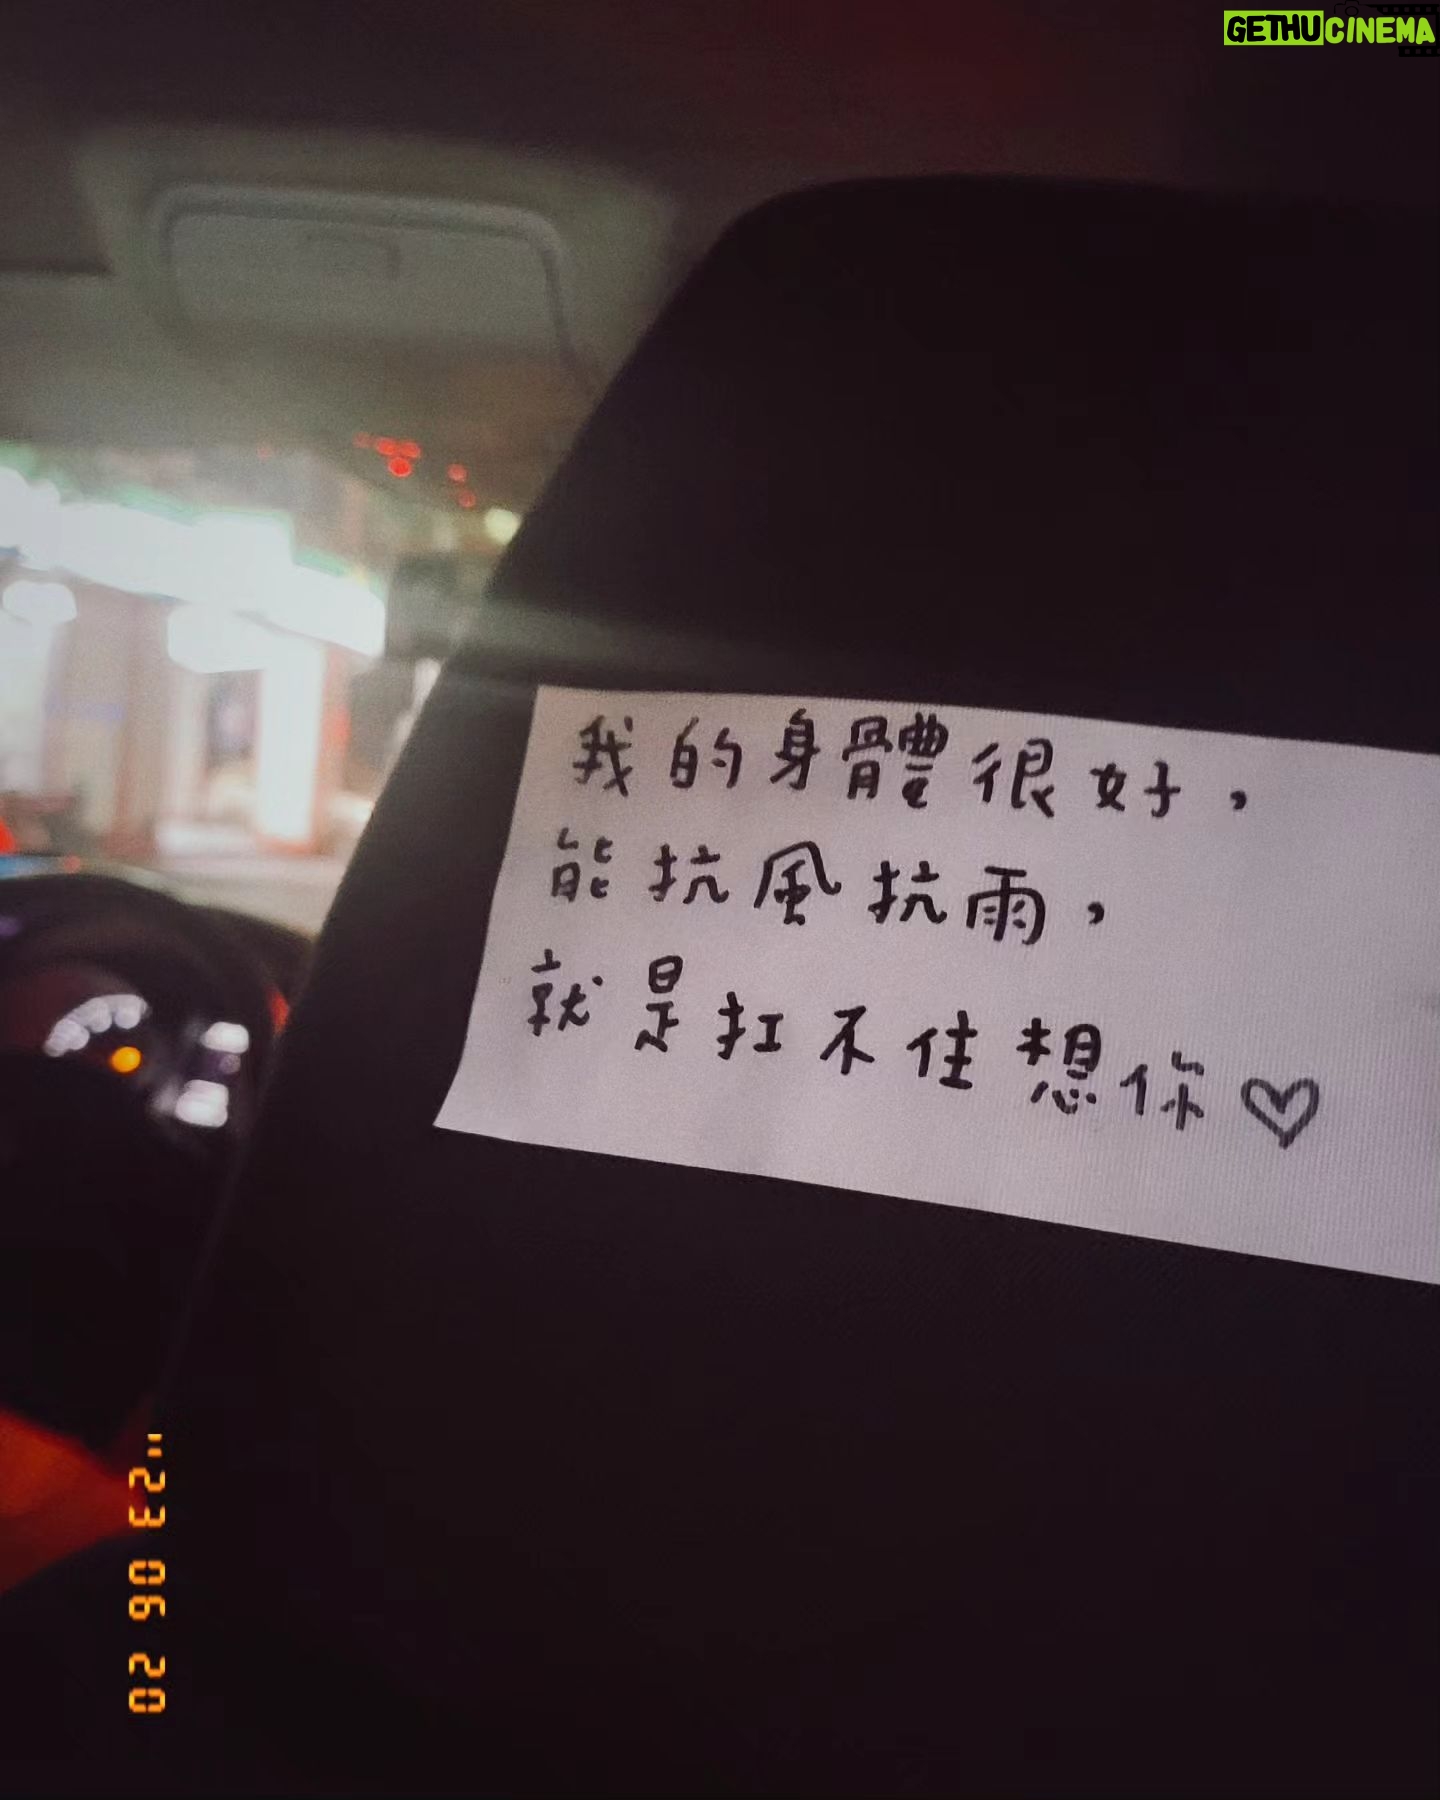 GETHUCINEMA
我的身體很好，
能抗風抗雨，
就是扛不住想你♡
"23 06 20